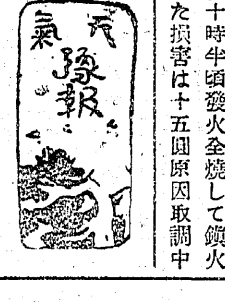 十時半頃發火全燒して鎭火
た損害は十五圓原因取調中
天氣
豫報